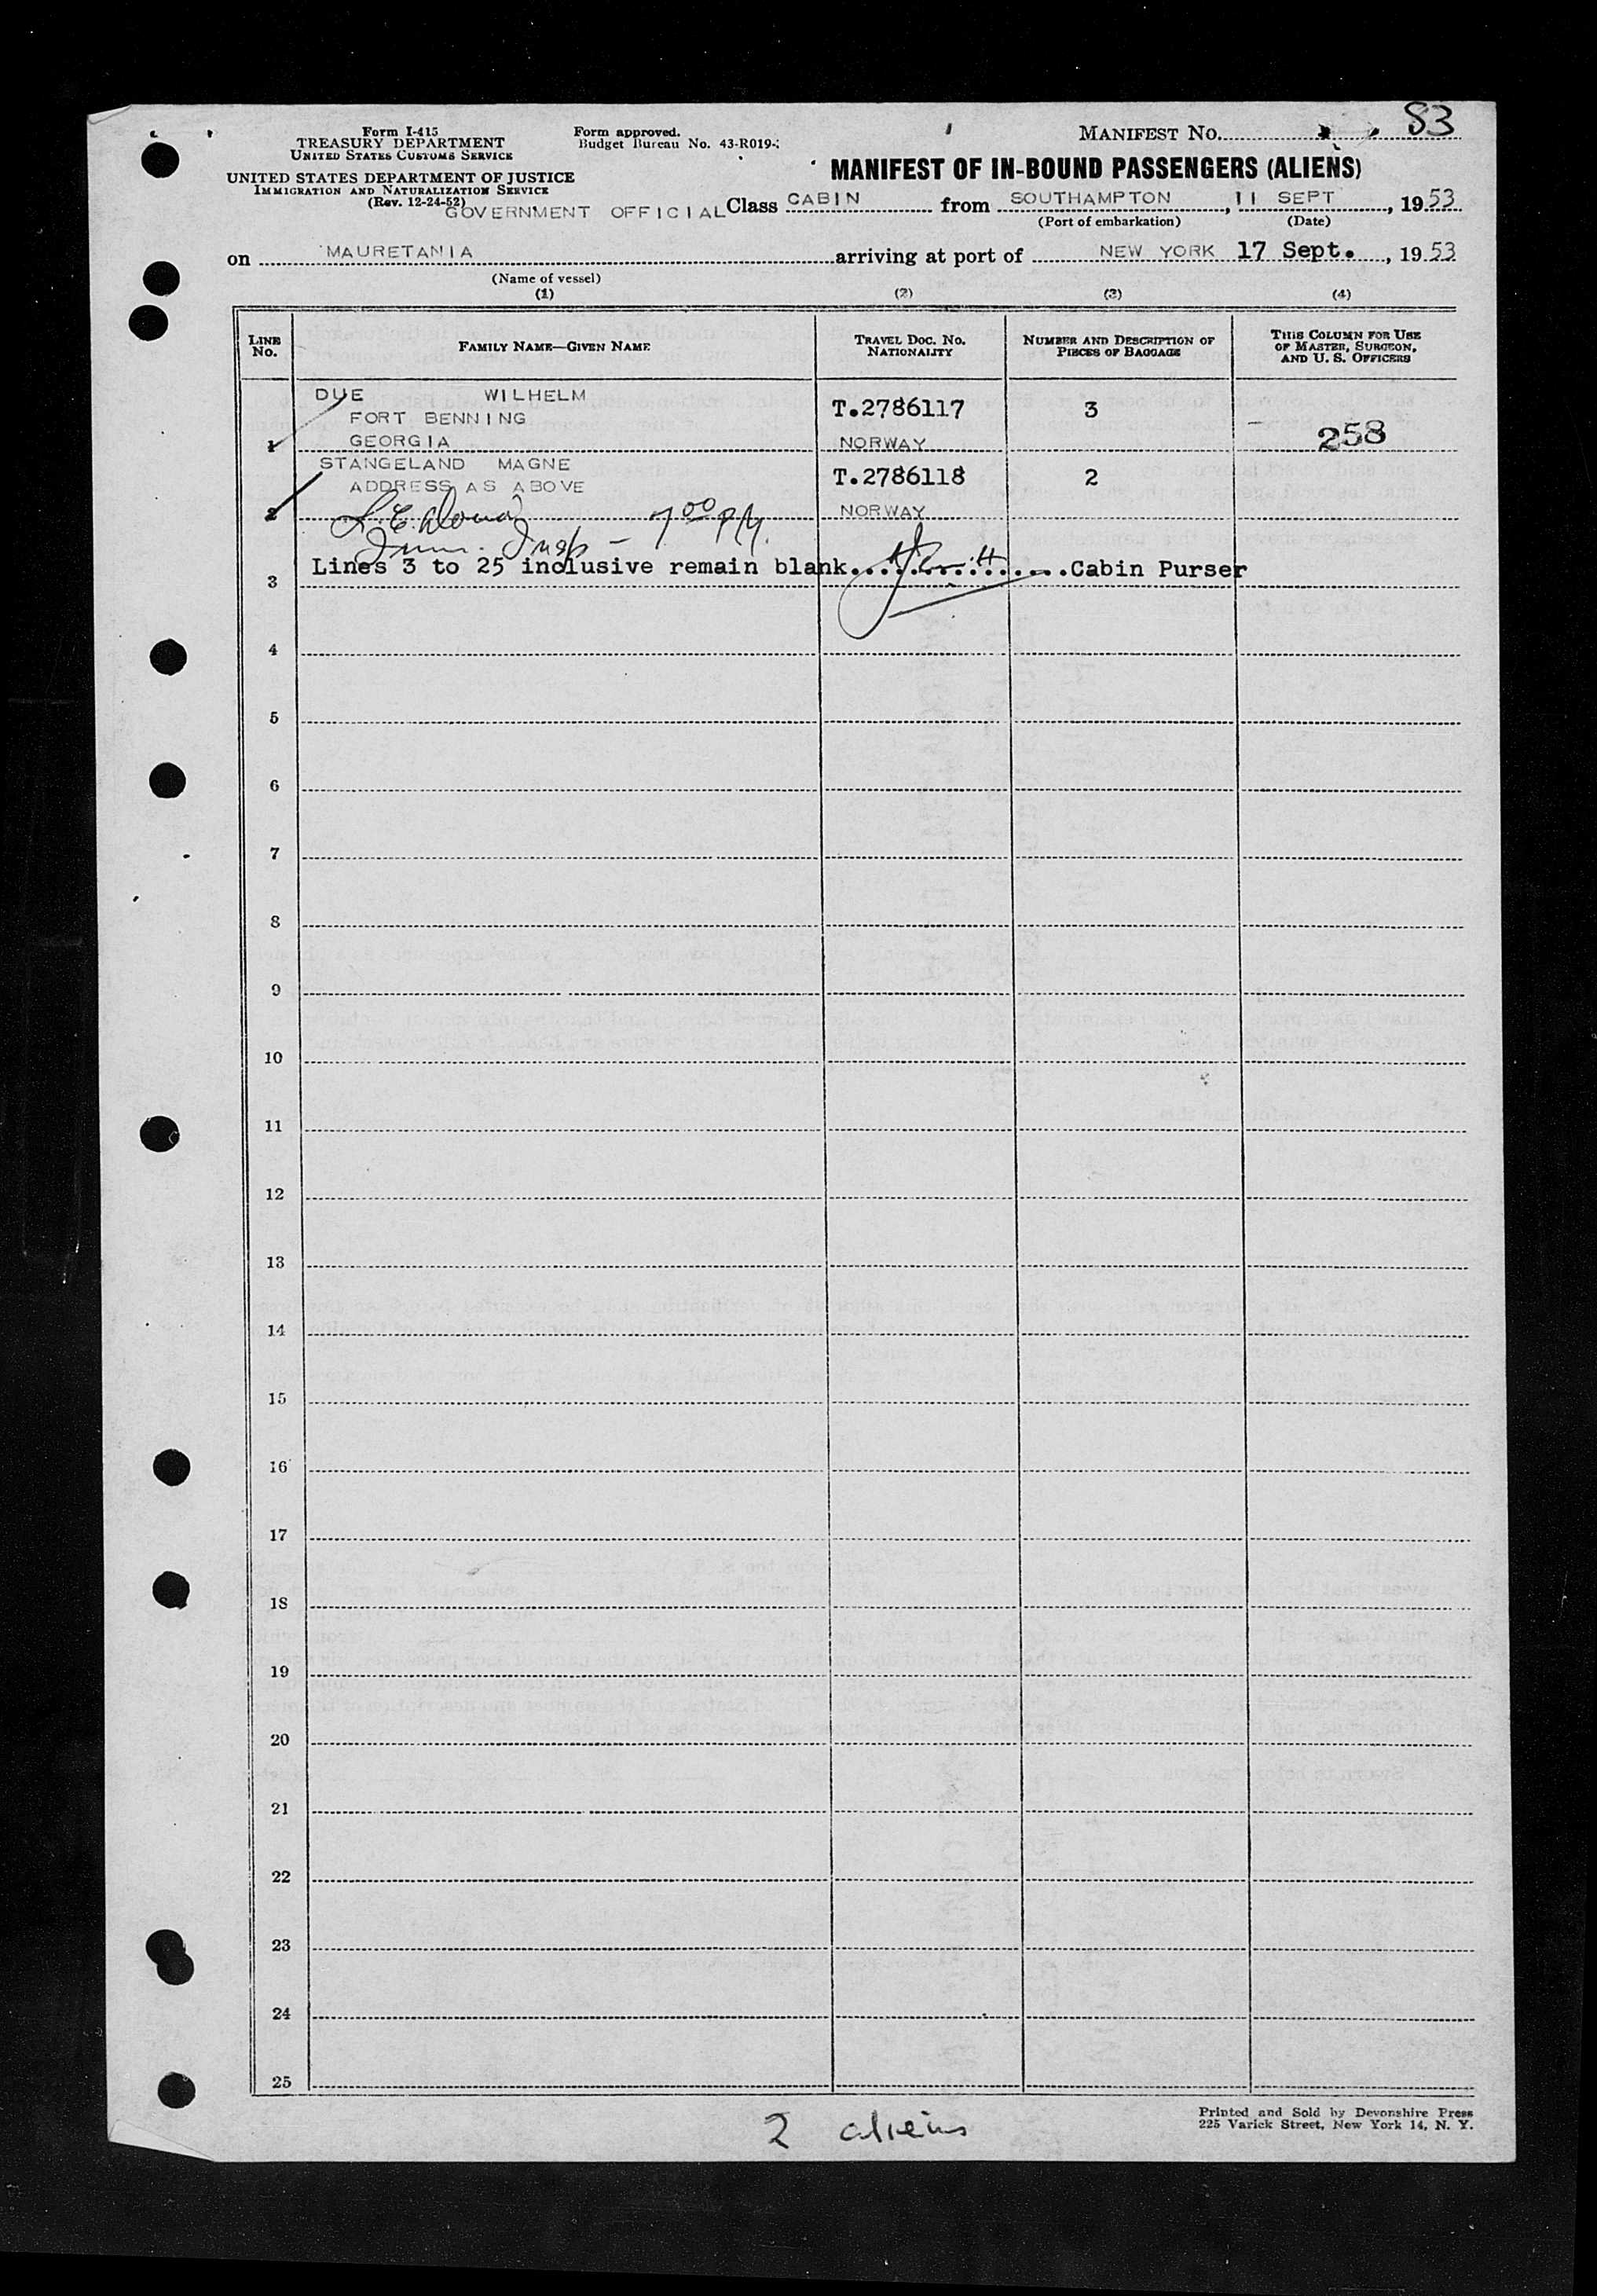 Form I-415
TREASURY DEPARTMENT
UNITED STATES CUSTOMS SERVICE
UNITED STATES DEPARTMENT OF JUSTICE
IMMIGRATION AND NATURALIZATION SERVICE
(Rev. 12-24-52)
Form approved.
Budget Bureau No. 43-R019-
MANIFEST NO. 83
MANIFEST OF IN-BOUND PASSENGERS (ALIENS)
GOVERNMENT OFFICIAL Class CABIN from SOUTHAMPTON, 11 SEPT, 1953
(Port of embarkation) (Date)
on MAURETANIA arriving at port of NEW YORK 17 Sept., 1953
(Name of vessel)
(1) (2) (3) (4)
LINE No. FAMILY NAME—GIVEN NAME TRAVEL DOC. NO. NATIONALITY NUMBER AND DESCRIPTION OF PIECES OF BAGGAGE THIS COLUMN FOR USE OF MASTER, SURGEON, AND U. S. OFFICERS
DUE WILHELM T.2786117 3
FORT BENNING
1 GEORGIA NORWAY 258
STANGELAND MAGNE T.2786118 2
ADDRESS AS ABOVE
2 NORWAY
7 00 PM.
Imm. Insp -
3 Lines 3 to 25 inclusive remain blank. Cabin Purser
4
5
6
7
8
9
10
11
12
13
14
15
16
17
18
19
20
21
22
23
24
25
2 aliens
Printed and Sold by Devonshire Press
225 Varick Street, New York 14, N. Y.